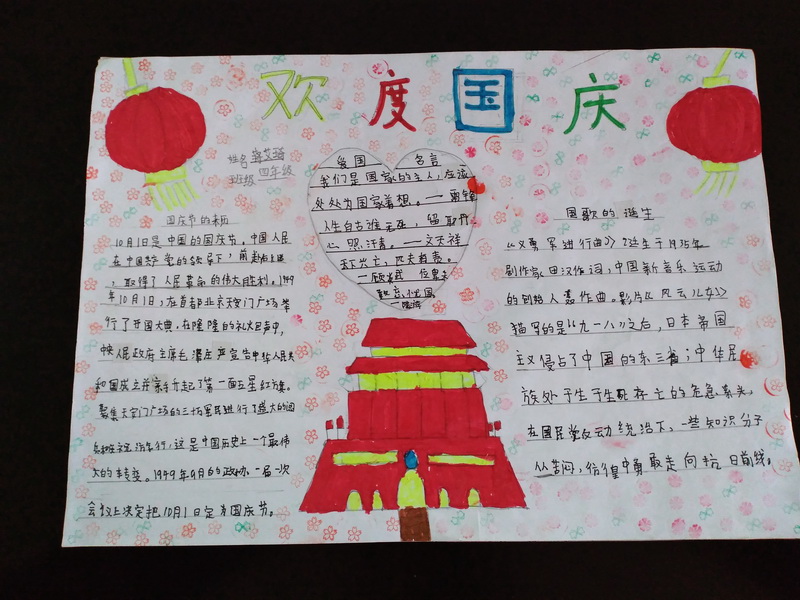 欢度国庆
姓名
班级 四年级
国庆节的来历
10月1日是中国的国庆节。中国人民
在中国共产党的领导下，前赴后继
，取得了人民革命的伟大胜利。1949
年10月1日，在首都北京天安门广场举
行了开国大典，在隆隆的礼炮声中，
中央人民政府主席毛泽庄严宣告中华人民共
和国成立并亲手升起了第一面五星红旗。
聚集天安门广场的三十万军民进行了盛大的阅
兵和庆祝游行，这是中国历史上一个最伟
大的转变。1949年9月的政协一届一次
会议上决定把10月1日定为国庆节。
爱国 名言
我们是国家的主人，应该
处处为国家着想。——雷锋
人生自古谁无死，留取丹
心照汗青。——文天祥
天下兴亡，匹夫有责。
国歌的诞生
《义勇军进行曲》诞生于1935年
剧作家田汉作词，中国新音乐运动
的创始人聂作曲。影片《风云儿女》
描写的是"九一八"之后，日本帝国
主义侵占了中国的东三省；中华民
族处于生死存亡的危急关头，
在国民党反动统治下，一些知识分子
从苦闷，彷徨中勇敢走向抗日前线。